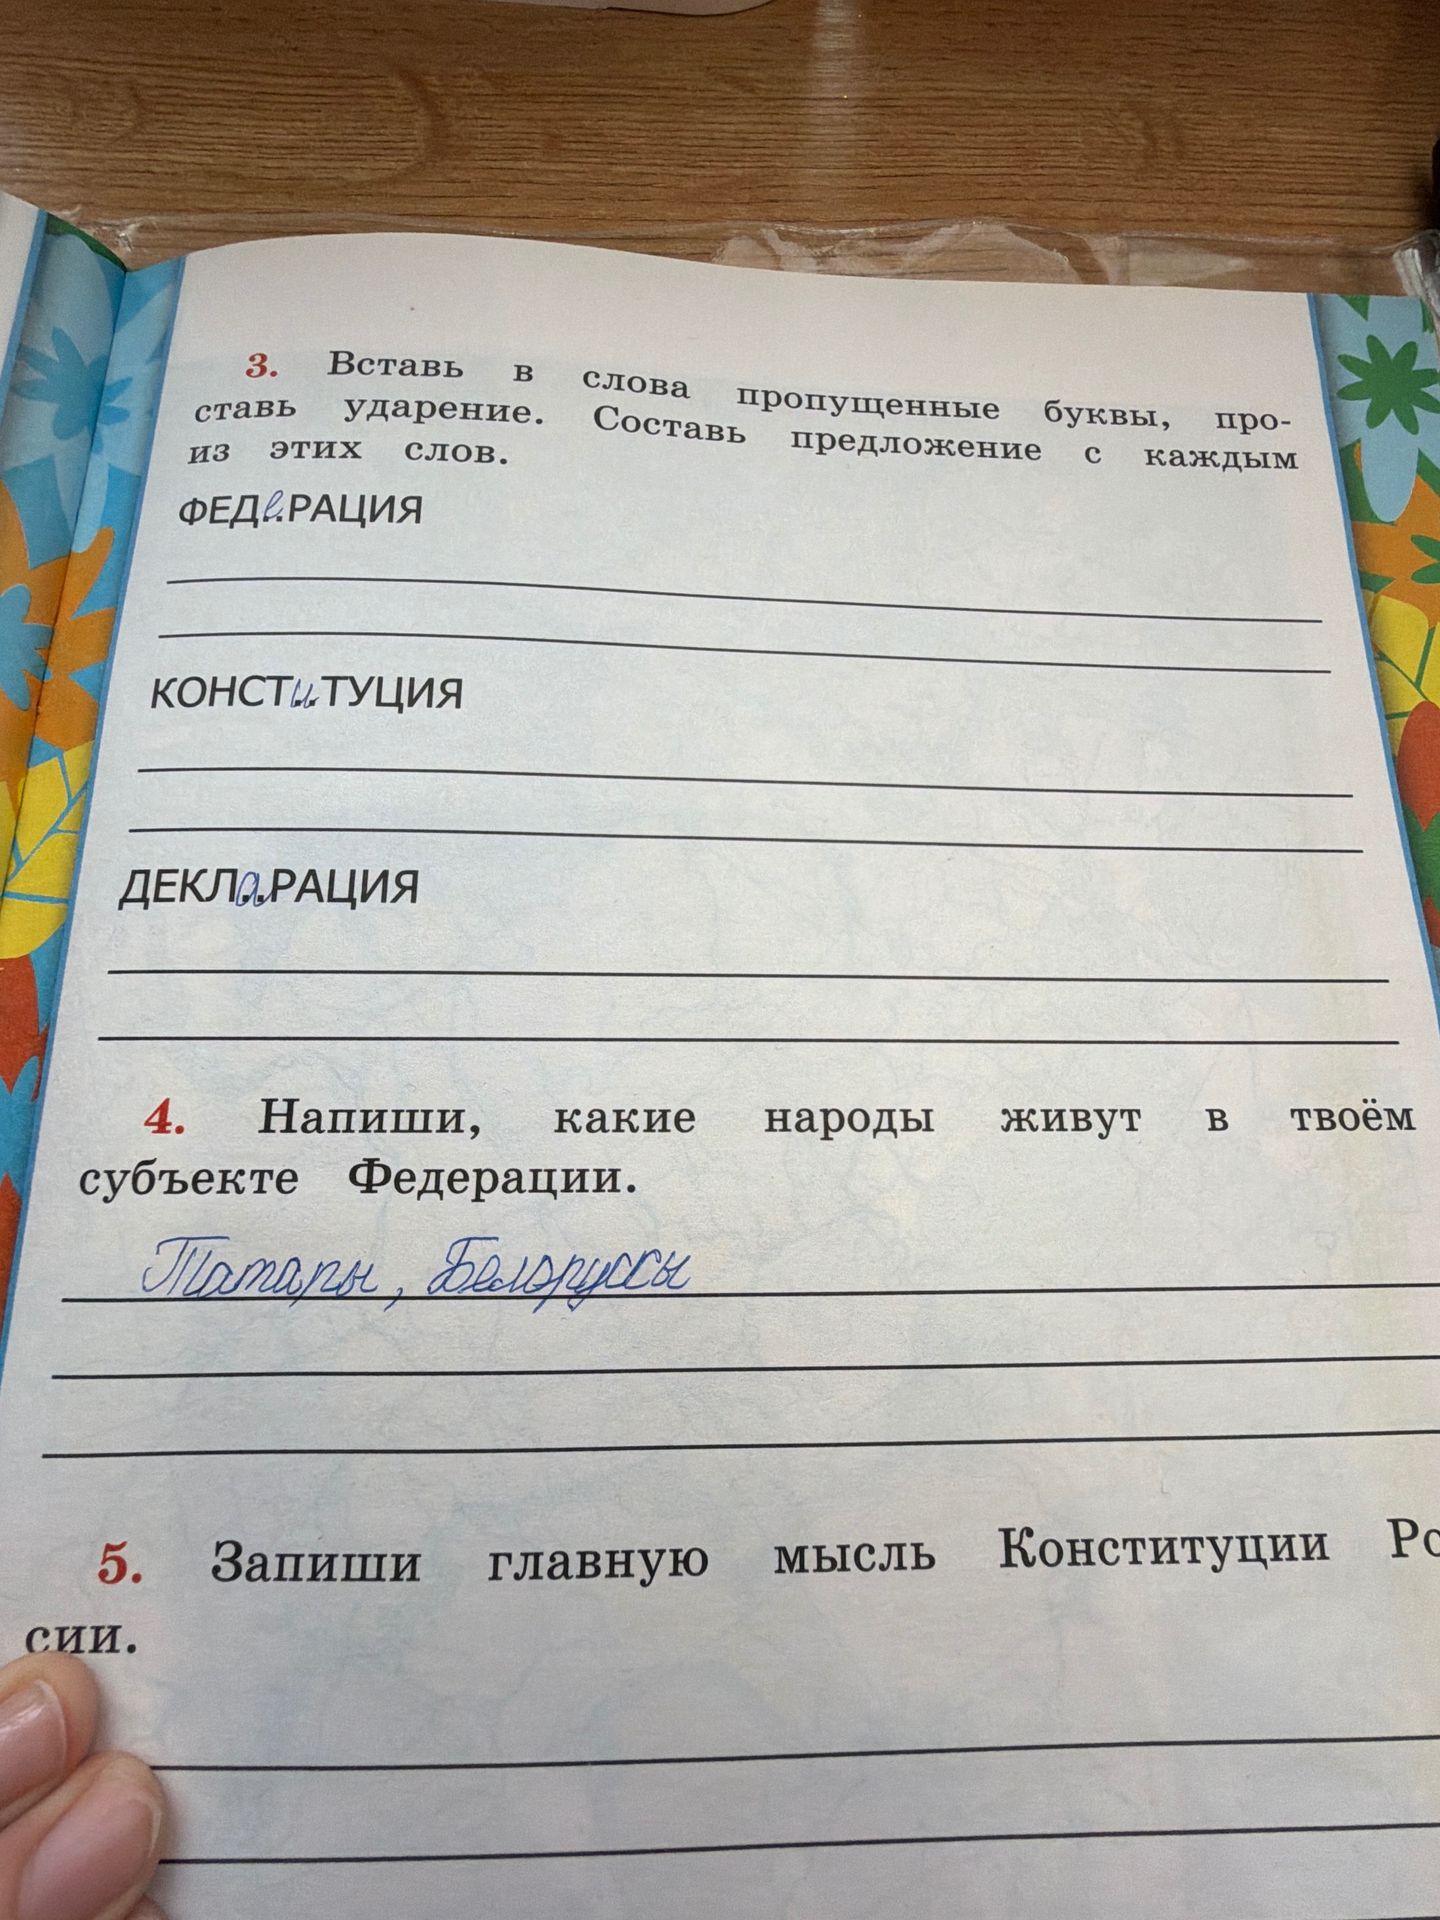 3. Вставь в слова пропущенные буквы, про-
ставь ударение. Составь предложение с каждым
из этих слов.
ФЕДе..РАЦИЯ
КОНСТи..ТУЦИЯ
ДЕКЛа..РАЦИЯ
4. Напиши, какие народы живут в твоём
субъекте Федерации.
Татары, Белоруссы
5. Запиши главную мысль Конституции Ро
сии.